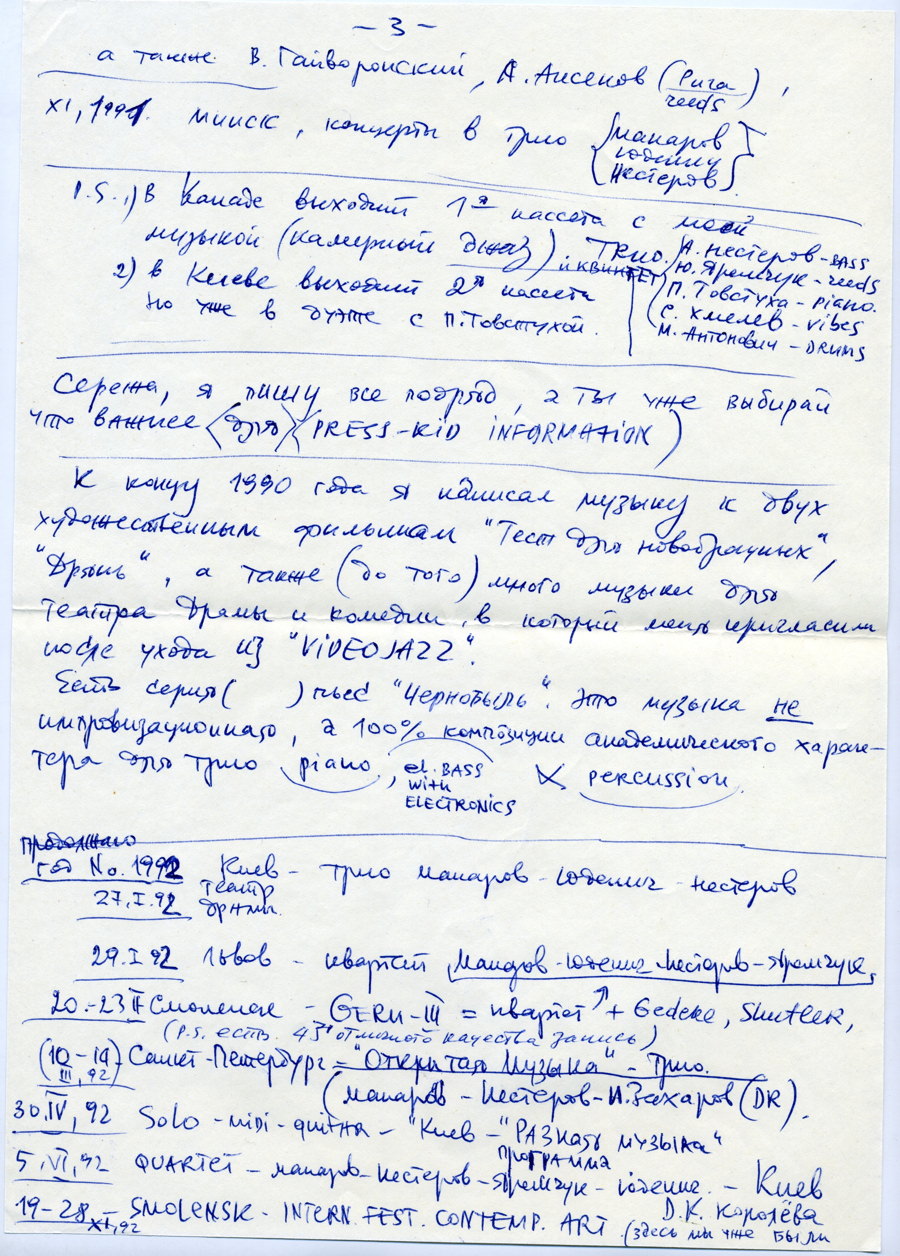 - 3 -
а также В. Гайворонский, А. Аксенов (Рига / reeds),
XI, 1991. Минск, концерты в трио {Макаров
Юденич
Нестеров}
P.S. 1) В Канаде выходит 1я кассета с моей
музыкой (камерный джаз) и квинтет Трио.
А. Нестеров - BASS
Ю. Яремчук - reeds
П. Товстуха - piano.
С. Хмелев - vibes
М. Антонович - DRUMS
2) в Киеве выходит 2я кассета
но уже в дуэте с П. Товстухой.
Сережа, я пишу все подряд, а ты уже выбирай
что важнее для (PRESS-KID INFORMATION)
К концу 1990 года я написал музыку к двух
художественным фильмам "Тест для новобрачных",
"Дрянь", а также (до того) много музыки для
театра Драмы и комедии, в который меня пригласили
после ухода из "VIDEOJAZZ".
Есть серия ( ) пьес "Чернобыль". Это музыка не
импровизационная, а 100% композиции академического харак-
тера для трио piano, el. BASS
with
ELECTRONICS
percussion.
год No. 1992 Киев - трио Макаров - Юденич - Нестеров
27.I.92 театр
драмы.
29.I 92 Львов - квартет Макаров - Юденич Нестеров - Яремчук,
20.-23 II Смоленск - GERU-III = квартет ↑ + Gedeke, Shutler,
(P.S. есть 43' отличного качества запись)
(10-14) Санкт-Петербург = "Открытая Музыка" - трио.
III, 92
(Макаров - Нестеров - И. Захаров (DR).
30.IV, 92 Solo - midi - guitar - "Киев - "
программа
5.VI, 92 QUARTET - Макаров - Нестеров - Яремчук - Юденич. - Киев
Д.К. Королёва
19-28 - SMOLENSK - INTERN. FEST. CONTEMP. ART (здесь мы уже были
XI, 92